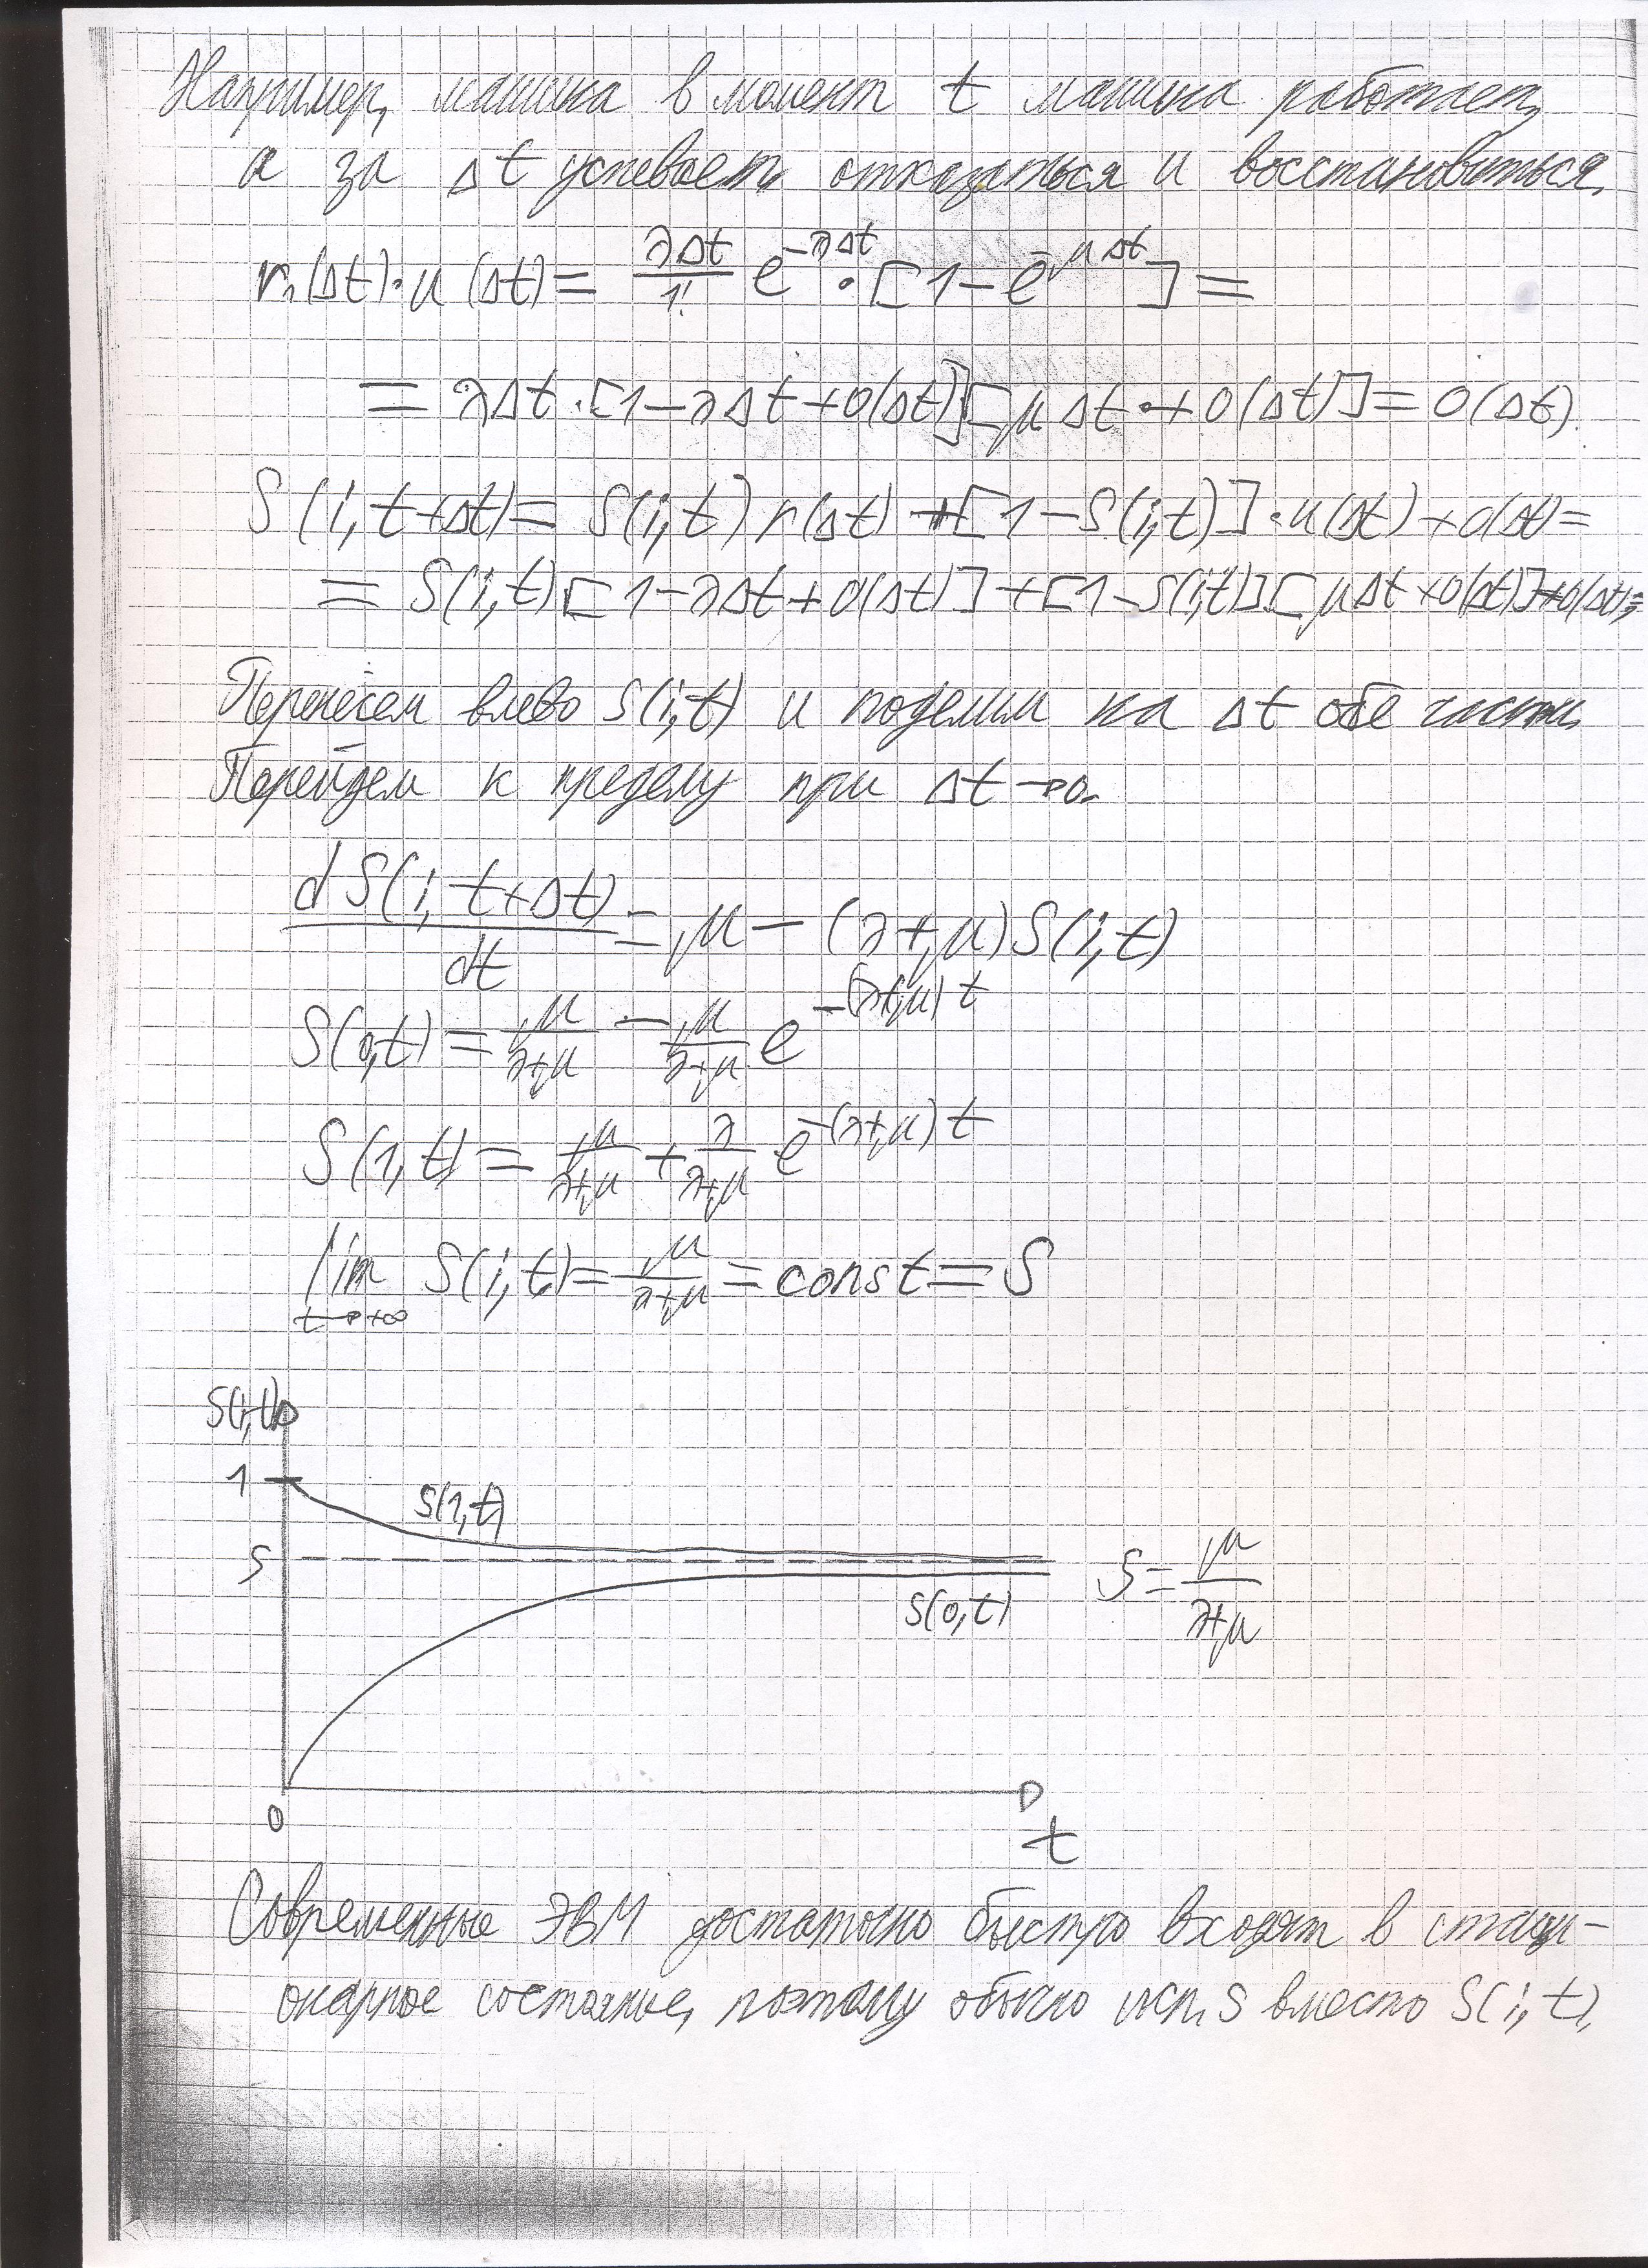 Например, машина в момент t машина работает,
а за Δt успевает отказаться и восстановиться.
r₁(Δt)·u(Δt) = λΔt/1! e^(-λΔt) · [1 - e^(-μΔt)] =
= λΔt·[1-λΔt+0(Δt)][μΔt+0(Δt)] = 0(Δt).
S(i,t+Δt) = S(i,t)r(Δt)+[1-S(i,t)]·u(Δt)+0(Δt)=
= S(i,t)[1-λΔt+0(Δt)]+[1-S(i,t)][μΔt+0(Δt)]+0(Δt)=
Перенесём влево S(i,t) и поделим на Δt обе части.
Перейдем к пределу при Δt→0.
dS(i,t+Δt)/dt = μ - (λ+μ)S(i,t)
S(0,t) = μ/(λ+μ) - μ/(λ+μ) e^(-(λ+μ)t)
S(1,t) = μ/(λ+μ) + λ/(λ+μ) e^(-(λ+μ)t)
lim t→+∞ S(i,t) = μ/(λ+μ) = const = S
S(i,t)
1
S(1,t)
S
S = μ/(λ+μ)
S(0,t)
0
t
Современные ЭВМ достаточно быстро входят в стаци-
онарное состояние, поэтому обычно исп. S вместо S(i,t).